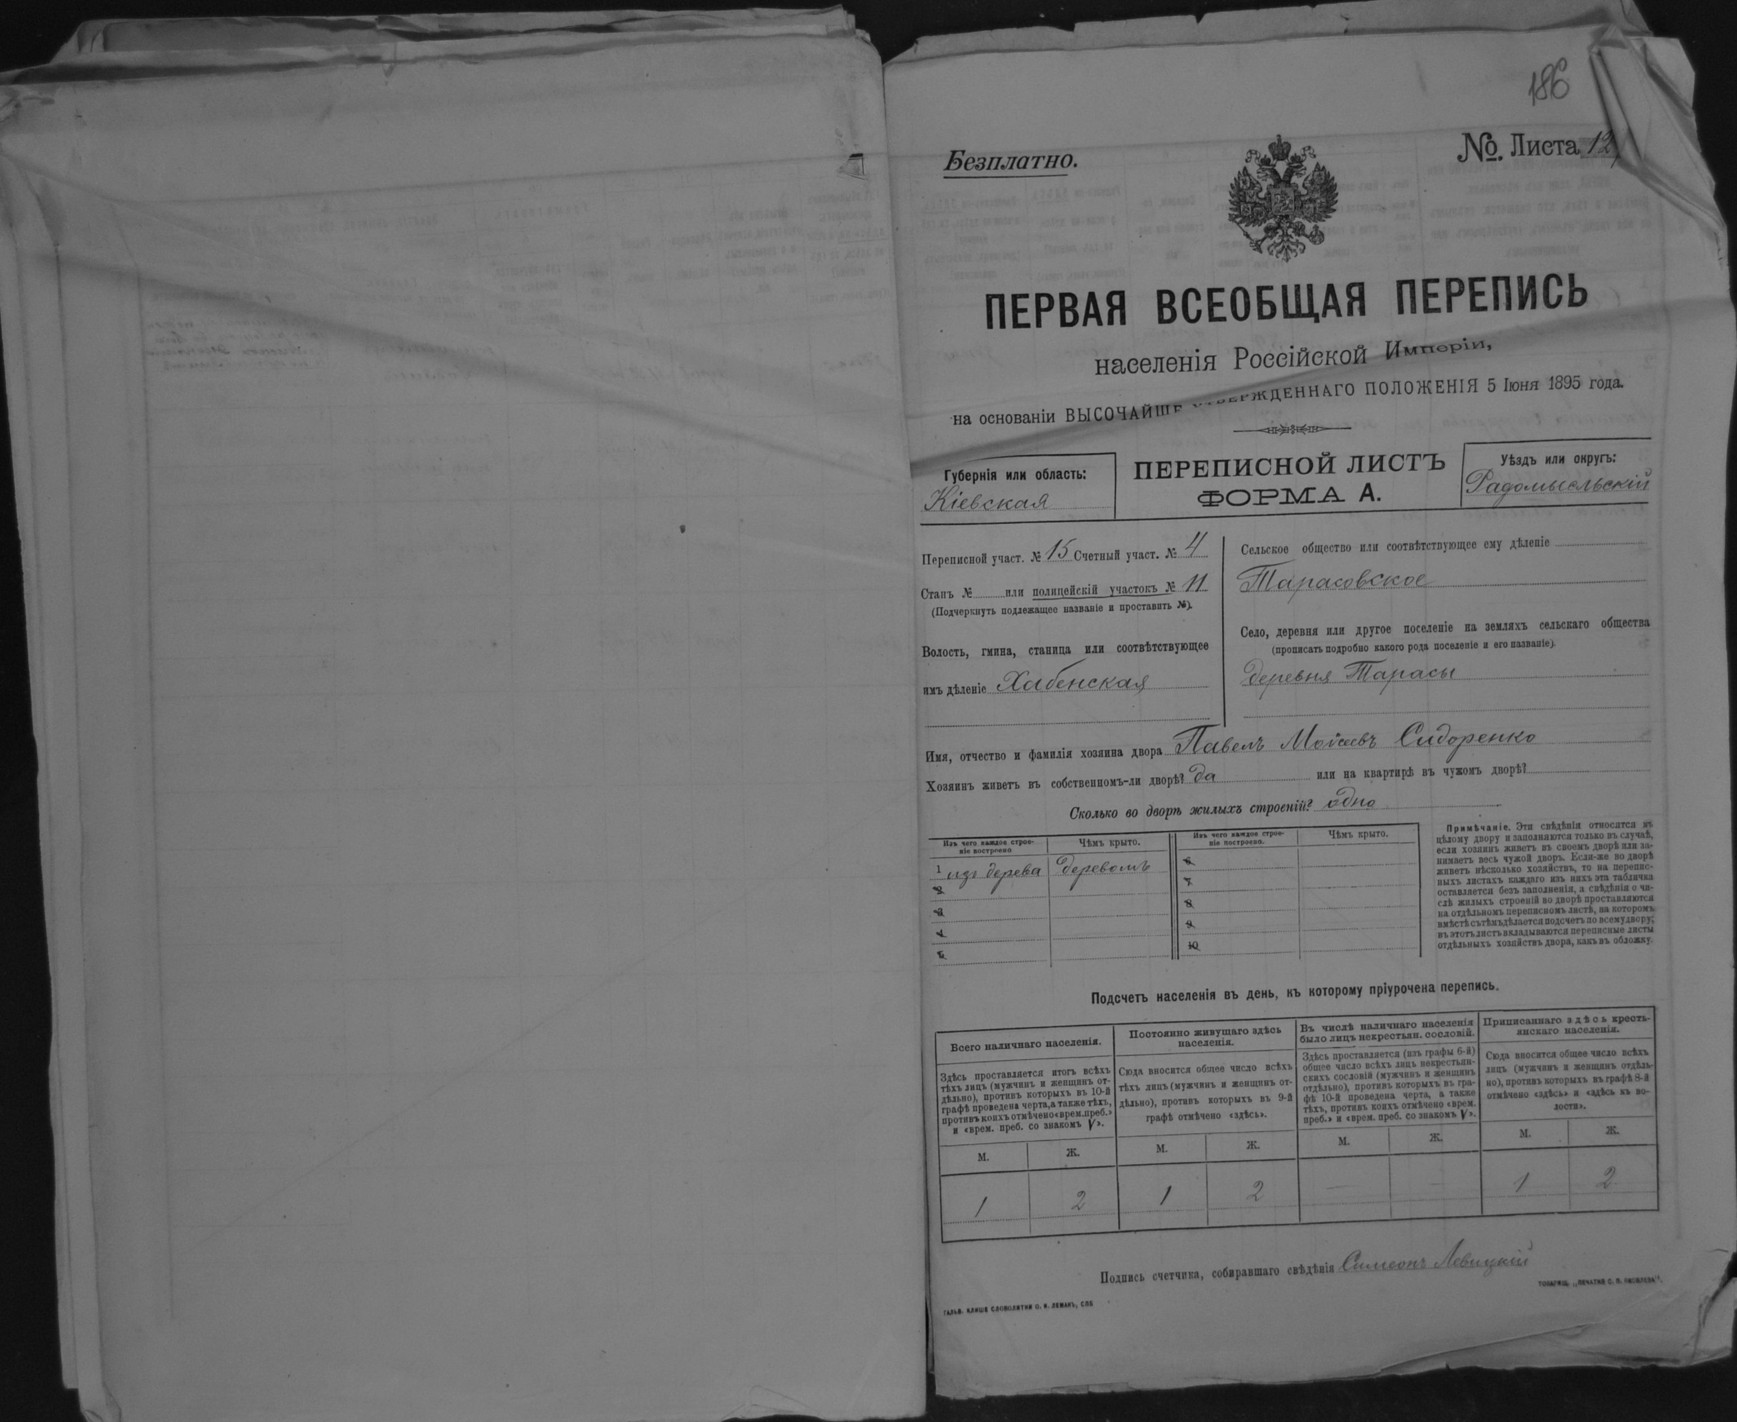 186
Безплатно.
№. Листа 12
ПЕРВАЯ ВСЕОБЩАЯ ПЕРЕПИСЬ
населенія Россійской Имперіи,
на основаніи ВЫСОЧАЙШЕ УТВЕРЖДЕННАГО ПОЛОЖЕНІЯ 5 Іюня 1895 года.
Губернія или область:
Кіевская
ПЕРЕПИСНОЙ ЛИСТЪ
ФОРМА А.
Уѣздъ или округъ:
Радомысльскій
Переписной участ. № 15 Счетный участ. № 4
Станъ № или полицейскій участокъ № 11
(Подчеркнуть подлежащее названіе и проставить №).
Волость, гмина, станица или соотвѣтствующее
имъ дѣленіе Хабенская
Сельское общество или соотвѣтствующее ему дѣленіе
Тарасовское
Село, деревня или другое поселеніе на земляхъ сельскаго общества
(прописать подробно какого рода поселеніе и его названіе).
деревня Тарасы
Имя, отчество и фамилія хозяина двора Павелъ Моѵсеевъ Сидоренко
Хозяинъ живетъ въ собственномъ-ли дворѣ? да или на квартирѣ въ чужомъ дворѣ?
Сколько во дворѣ жилыхъ строеній? одно
Изъ чего каждое строе-
ніе построено.
Чѣмъ крыто.
Изъ чего каждое строе-
ніе построено.
Чѣмъ крыто.
1 изъ дерева деревомъ
2
3
4
5
6
7
8
9
10
Примѣчаніе. Эти свѣдѣнія относятся къ
цѣлому двору и заполняются только въ случаѣ,
если хозяинъ живетъ въ своемъ дворѣ или за-
нимаетъ весь чужой дворъ. Если-же во дворѣ
живетъ нѣсколько хозяйствъ, то на перепис-
ныхъ листахъ каждаго изъ нихъ эта табличка
оставляется безъ заполненія, а свѣдѣнія о чи-
слѣ жилыхъ строеній во дворѣ проставляются
на отдѣльномъ переписномъ листѣ, на которомъ
вмѣстѣ съ тѣмъ дѣлается подсчетъ по всему двору;
въ этотъ листъ вкладываются переписные листы
отдѣльныхъ хозяйствъ двора, какъ въ обложку.
Подсчетъ населенія въ день, къ которому пріурочена перепись.
Всего наличнаго населенія.
Здѣсь проставляется итогъ всѣхъ
тѣхъ лицъ (мужчинъ и женщинъ от-
дѣльно), противъ которыхъ въ 10-й
графѣ проведена черта, а также тѣхъ,
противъ коихъ отмѣчено «врем. преб.»
и «врем. преб. со знакомъ V».
Постоянно живущаго здѣсь
населенія.
Сюда вносится общее число всѣхъ
тѣхъ лицъ (мужчинъ и женщинъ от-
дѣльно), противъ которыхъ въ 9-й
графѣ отмѣчено «здѣсь».
Въ числѣ наличнаго населенія
было лицъ некрестьян. сословій.
Здѣсь проставляется (изъ графы 6-й)
общее число всѣхъ лицъ некрестьян-
скихъ сословій (мужчинъ и женщинъ
отдѣльно), противъ которыхъ въ гра-
фѣ 10-й проведена черта, а также
тѣхъ, противъ коихъ отмѣчено «врем.
преб.» и «врем. преб. со знакомъ V».
Приписаннаго здѣсь кресть-
янскаго населенія.
Сюда вносится общее число всѣхъ
лицъ (мужчинъ и женщинъ отдѣль-
но), противъ которыхъ въ графѣ 8-й
отмѣчено «здѣсь» и «здѣсь къ во-
лости».
М. Ж. М. Ж. М. Ж. М. Ж.
1 2 1 2 — — 1 2
Подпись счетчика, собиравшаго свѣдѣнія Симеонъ Левицкій
ГАЛЬВ. КЛИШЕ СЛОВОЛИТНИ О. И. ЛЕМАНЪ, СПБ
ТОВАРИЩ. „ПЕЧАТНЯ С. П. ЯКОВЛЕВА".